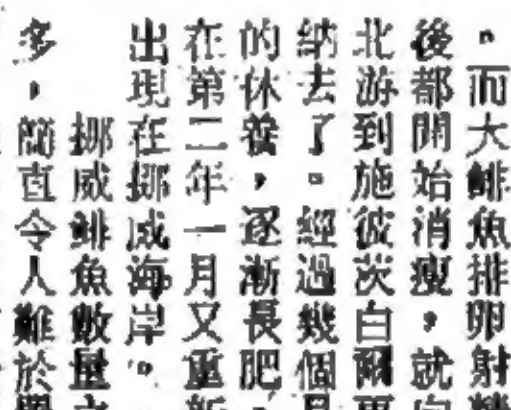 。而大鯡魚排卵射
後都開始消瘦，就向
北游到施彼茨白爾
納去了。經過幾個月
的休養，逐漸長肥，
在第二年一月又重新
出現在挪威海岸。
挪威鯡魚數量之
多，簡直令人難於